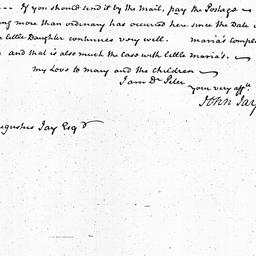 If you should send it by the Mail, pay the Postage
more than ordinary has occurred here since the Date
little Daughter continues very well. Maria's
and that is also much the Case with little Maria's.
my Love to Mary and the children
I am Dr Peter
your very affte.
John Jay
Augustus Jay Esqr